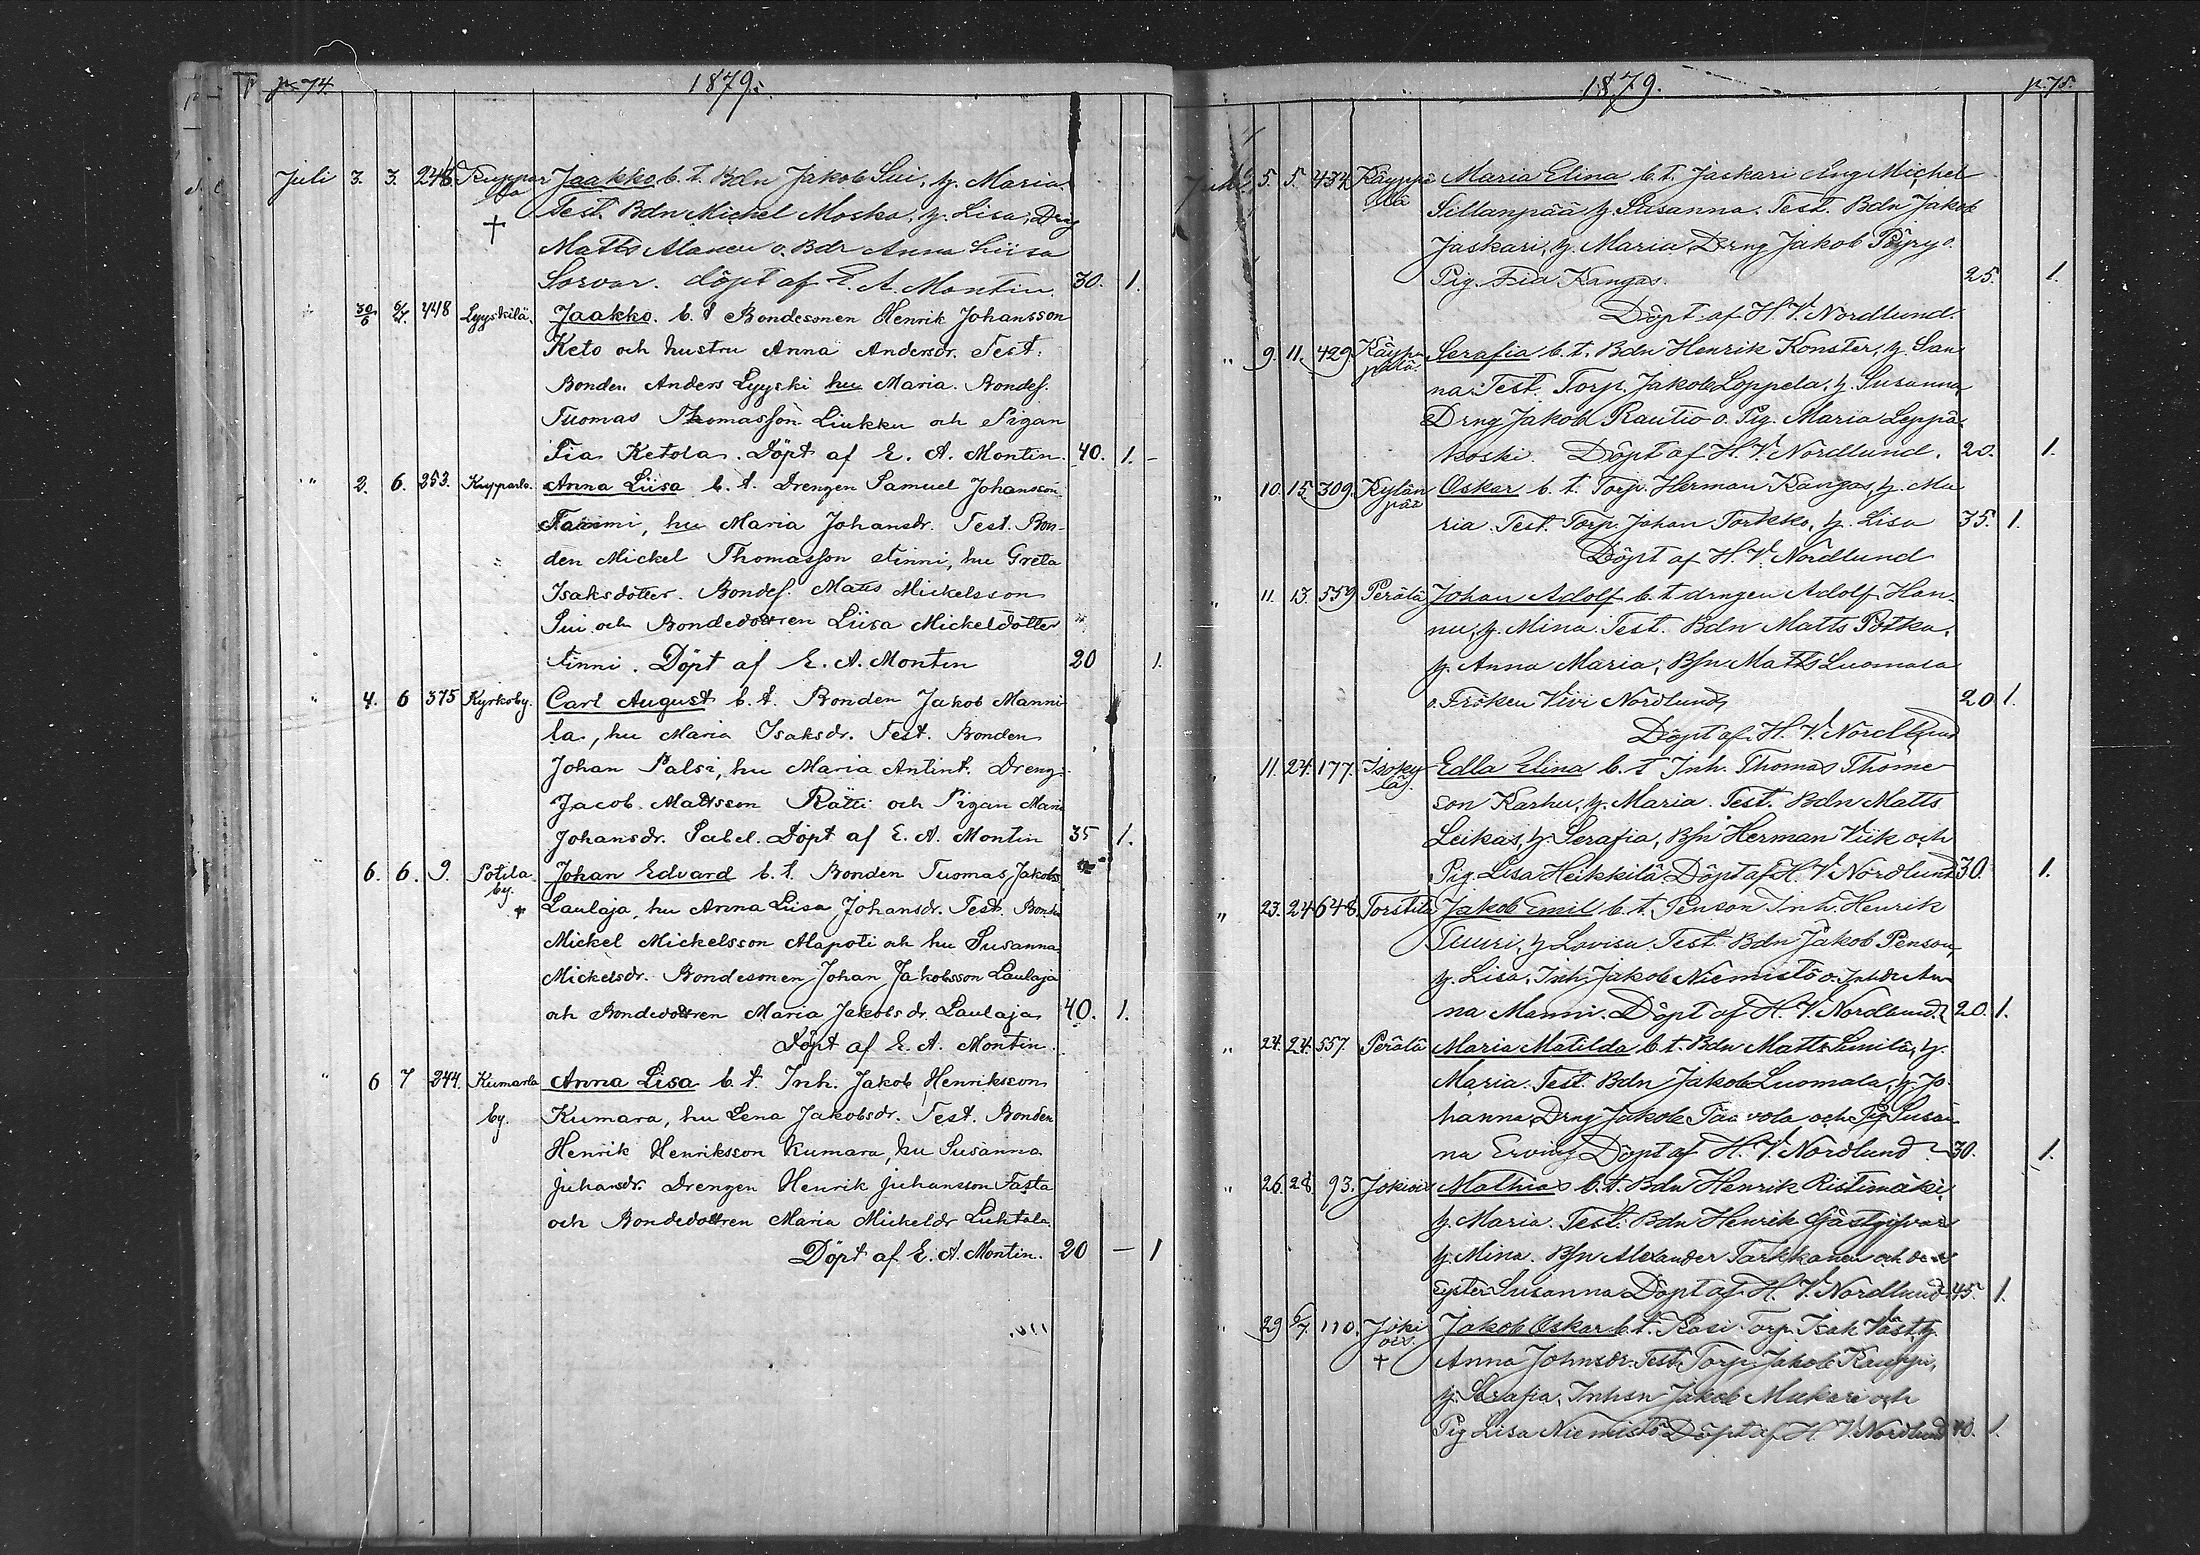 p. 74. 1879.
Juli 3. 3. 246 Ruppar Jaakko b. t. Bdn Jakob Sui, h. Maria
la Test. Bdn Mickel Moska, h. Lisa, Drng
† Matts Alanen o. Bdr Anna Liisa
Sorvar. döpt af E. A. Montin. 30. 1.
30/6 6/7 448 Lyyskilä. Jaakko. b. t Bondesonen Henrik Johansson
Keto och hustru Anna Andersdr. Test.
Bonden Anders Lyyski hu Maria. Bondes.
Tuomas Thomasson Liukku och Pigan
Fia Ketola. Döpt af E. A. Montin 40. 1. -
" 2. 6. 253. Krupparla. Anna Liisa b. t. Drengen Samuel Johansson
Tammi, hu Maria Johansdr. Test. Bon-
den Mickel Thomasson Finni, hu Greta
Isaksdotter. Bondes. Matts Mickelsson
Sui och Bondedottren Liisa Mickelsdotter
Finni. Döpt af E. A. Montin 20 1.
" 4. 6 375 Kyrkoby. Carl August b. t. Bonden Jakob Manni
la, hu Maria Isaksdr. Test. Bonden
Johan Palsi, hu Maria Antint. Dreng.
Jacob Mattsson Rätti och Pigan Maria
Johansdr. Sabel. Döpt af E. A. Montin 35 1.
" 6. 6. 9. Potila Johan Edvard b. t. Bonden Tuomas Jakobs
by. † Laulaja, hu Anna Liisa Johansdr. Test. Bonden
Mickel Mickelsson Alapoti och hu Susanna
Mickelsdr. Bondesonen Johan Jakobsson Laulaja
och Bondedottren Maria Jakobsdr. Laulaja 40. 1.
Döpt af E. A. Montin.
" 6 7 244. Kumarla Anna Lisa b. t. Inh. Jakob Henriksson
by. Kumara, hu Lena Jakobsdr. Test. Bonden
Henrik Henriksson Kumara, hu Susanna
Juhansdr. Drengen Henrik Juhansson Fasta
och Bondedottren Maria Mickelsdr Luhtala.
Döpt af E. A. Montin. 20 - 1
1879. p. 75.
Juli 5. 5. 434 Käyppä Maria Elina b. t. Jaskari Eng Michel
lä Sillanpää h. Susanna. Test. Bdn Jakob
Jaskari, h. Maria, Drng Jakob Pöyry o.
Pig. Fia Kangas. 25. 1.
Döpt af H. V. Nordlund.
" 9. 11. 429. Käyp- Serafia b. t. Bdn Henrik Konster, h. San
pälä. na. Test. Torp. Jakob Loppela, h. Susanna,
Drng Jakob Rautio o. Pig. Maria Leppä-
koski. Döpt af H. V. Nordlund. 20. 1.
" 10. 15. 309. Kylän Oskar b. t. Torp. Herman Kangas, h. Ma
pää ria. Test. Torp. Johan Torkko, h. Lisa 35. 1.
Döpt af H. V. Nordlund
" 11. 13. 559 Perälä Johan Adolf b. t. drngen Adolf Han-
nu, h. Mina. Test. Bdn Matts Potka,
h. Anna Maria, Bsn Matts Luomala
o. Fröken Vivi Nordlund, 20 1.
Döpt af H. V. Nordlund
" 11. 24. 177. Isoky Edla Elina b. t Inh. Thomas Thome-
lä. son Karhu, h. Maria. Test. Bdn Matts
Leikas, h. Serafia, Bsn Herman Viik och
Pig. Lisa Heikkilä. Döpt af H. V. Nordlund 30. 1.
" 23. 24 648 Torstila Jakob Emil b. t. Penson Inh. Henrik
Tuuri, h Lovisa. Test. Bdn Jakob Penson,
h. Lisa, Inh. Jakob Niemistö o. Inhdr An-
na Manni. Döpt af H. V. Nordlund. 20. 1.
" 24. 24. 557. Perälä Maria Matilda b. t. Bdn Matts Lintilä, h.
Maria. Test. Bdn Jakob Luomala, h. Jo-
hanna, Drng Jakob Taavola och Pig Susan
na Erving. Döpt af H. V. Nordlund 30. 1.
" 26. 28. 93. Jokiois Mathias b. t. Bdn Henrik Ristimäki,
h. Maria. Test. Bdn Henrik Gästgifvar
h. Mina. Bsn Alexander Tarkkanen och dess
syster Susanna Döpt af H. V. Nordlund 45. 1.
29 6/7 110. Joki Jakob Oskar b. t. Rasi Torp. Isak Väst, h.
ois. † Anna Johnsdr. Test. Torp. Jakob Kauppi,
h. Serafia, Inhsn Jakob Mukari och
Pig Lisa Niemistö Döpt af H. V. Nordlund 40. 1.